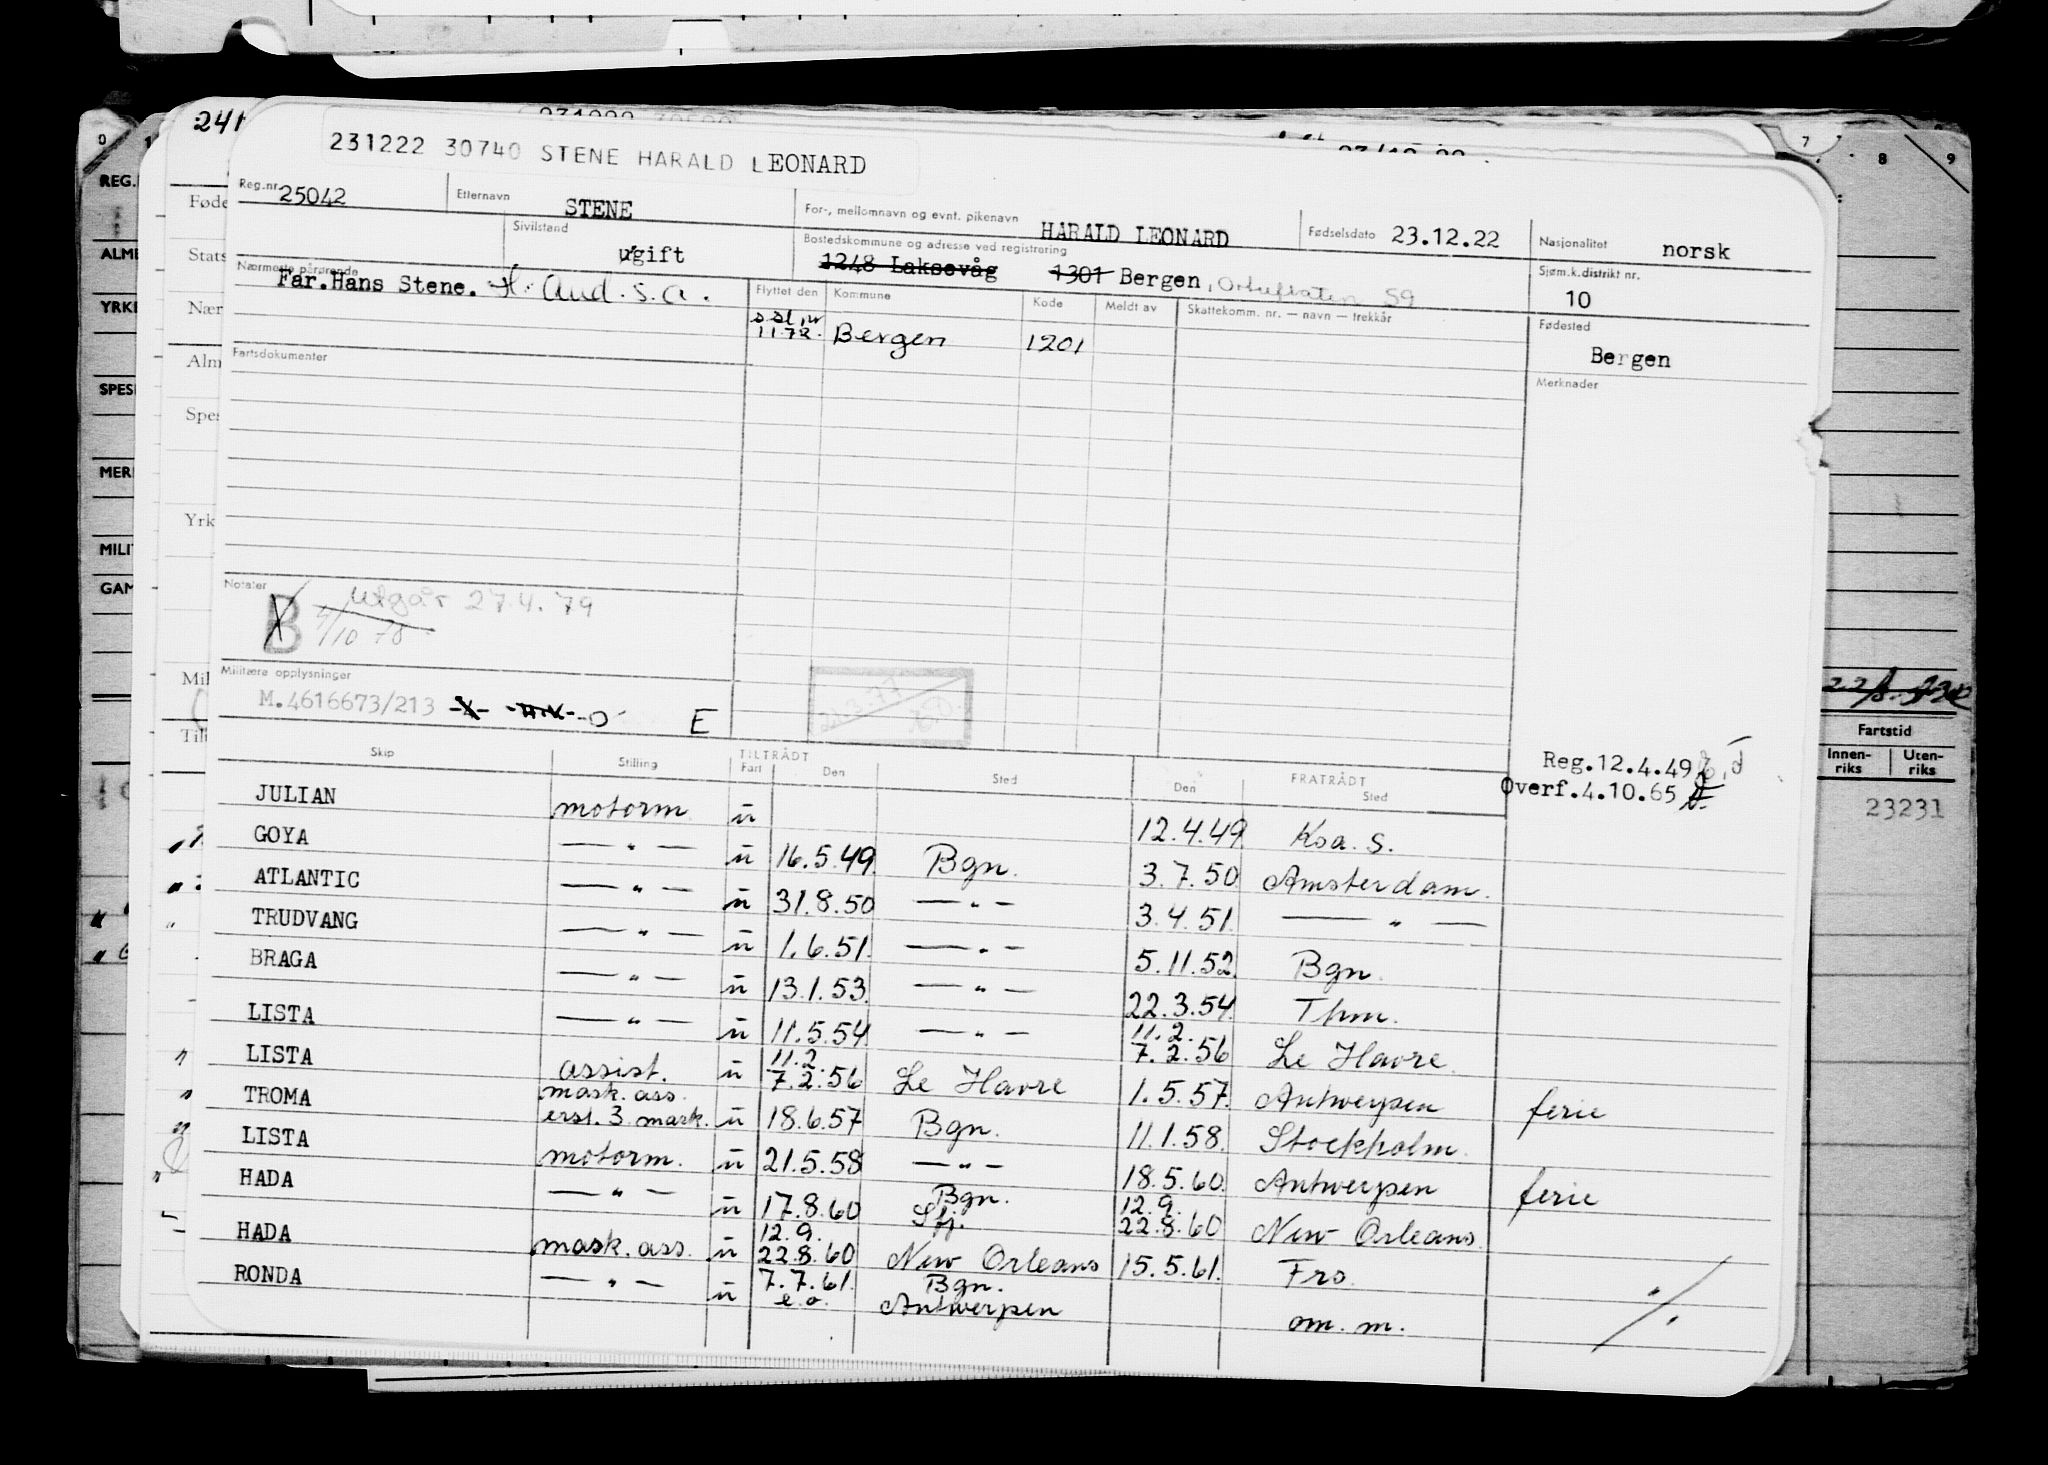 241
231222 30740 STENE HARALD LEONARD
Reg.nr. 25042 Etternavn STENE For-, mellomnavn og evnt. pikenavn HARALD LEONARD Fødselsdato 23.12.22 Nasjonalitet norsk
Sivilstand gift Bostedskommune og adresse ved registrering 1248 Laksevåg 1301 Bergen, Sjøm.k.distrikt nr. 10
Nærmeste pårørende Far.Hans Stene.
Flyttet den Kommune Kode Meldt av Skattekomm. nr. — navn — trekkår Fødested Bergen
1172. Bergen 1201
Fartsdokumenter Merknader
Notater B Utgår 27.4.79
4/10 78
Militære opplysninger
M.4616673/213 E
Reg.12.4.49
Overf.4.10.65
Skip Stilling TILTRÅDT Fart Den Sted FRATRÅDT Den Sted
JULIAN motorm ū 12.4.49 Koa. S.
GOYA — " — ū 16.5.49 Bgn. 3.7.50 Amsterdam.
ATLANTIC — " — ū 31.8.50 — " — 3.4.51 — " —
TRUDVANG — " — ū 1.6.51 — " — 5.11.52 Bgn.
BRAGA — " — ū 13.1.53 — " — 22.3.54 Thm.
LISTA — " — ū 11.5.54 — " — 11.2. 7.2.56 Le Havre.
LISTA assist. ū 11.2. 7.2.56 Le Havre 1.5.57 Antwerpen ferie
TROMA mask. ass. erst. 3 mask. ū 18.6.57 Bgn. 11.1.58 Stockholm.
LISTA motorm. ū 21.5.58 — " — 18.5.60 Antwerpen ferie
HADA — " — ū 17.8.60 Bgn. Sfj. 12.9. 22.8.60 New Orleans
HADA mask. ass. ū 12.9. 22.8.60 New Orleans 15.5.61. Fro.
RONDA — " — ū 7.7.61. e.o. Bgn. Antwerpen om. m. ./.
REG.
ALME
YRKE
SPES
MER
MILI
GAM
Føde
Stats
Nær
Alm
Spes
Yrk
Mil
Til
7 8 9
Fartstid
Innen-riks Uten-riks
23231